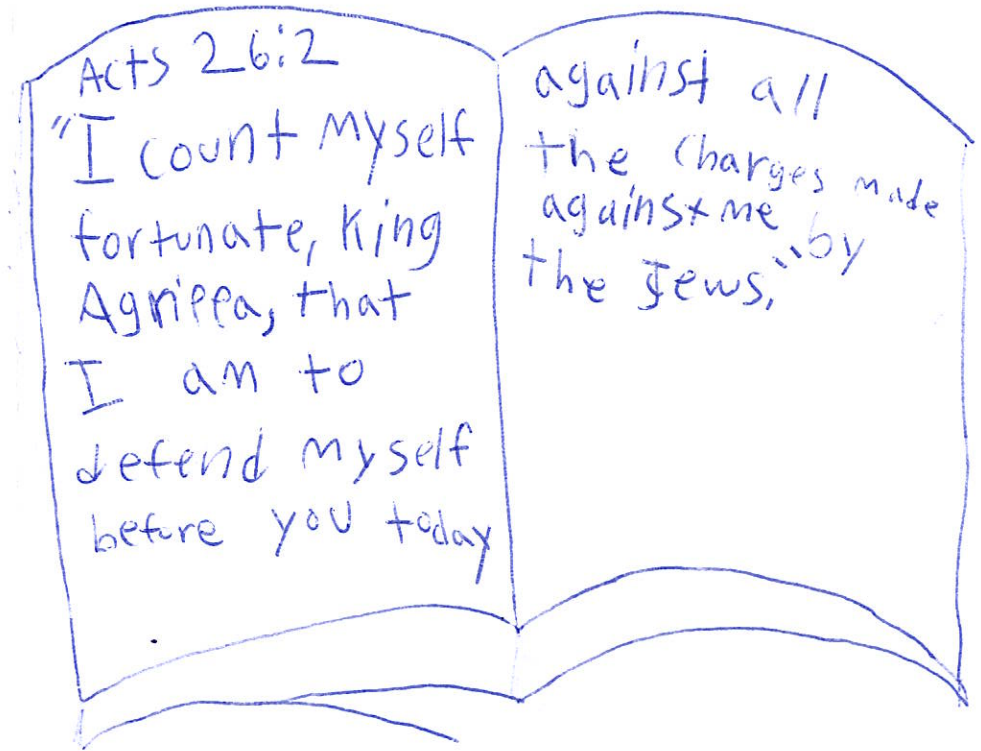 Acts 26:2
"I count myself
fortunate, King
Agrippa, that
I am to
defend myself
before you today
against all
the charges made
against me by
the Jews,"